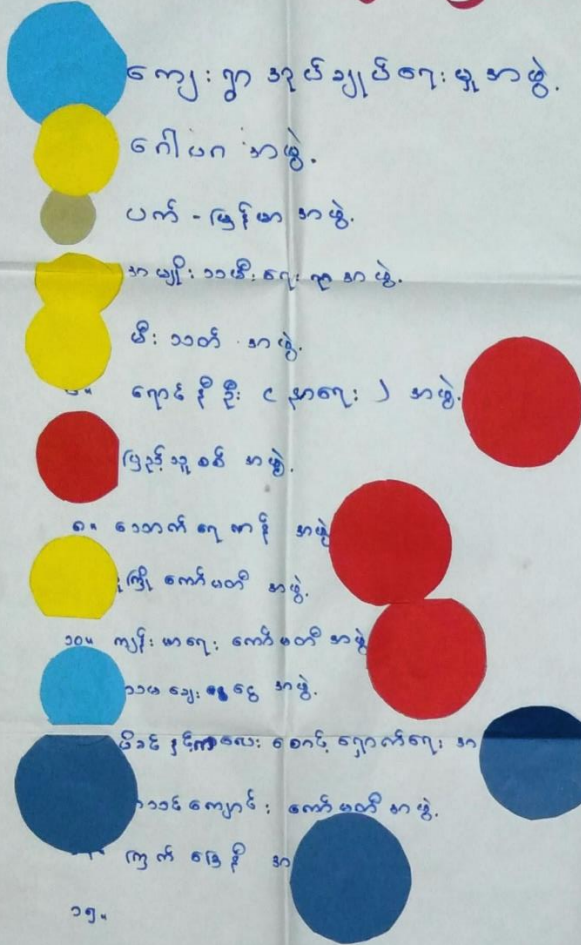 ကျေးရွာ အုပ်ချုပ်ရေးမှု အဖွဲ့.
ဂေါပက အဖွဲ့.
ပတ် - မြန်မာ အဖွဲ့.
အမျိုးသမီးရေးရာ အဖွဲ့.
မီးသတ် အဖွဲ့.
ရောင်နီဦး ( နာရေး ) အဖွဲ့.
ပြည်သူ့စစ် အဖွဲ့.
၈။ သောက်ရေကန် အဖွဲ့
ကြို ကော်မတီ အဖွဲ့.
၁၀။ ကျန်းမာရေး ကော်မတီ အဖွဲ့
သမ ချေးငွေ အဖွဲ့.
မိခင်နှင့်ကလေး စောင့်ရှောက်ရေး အ
သင်ကျောင်း ကော်မတီ အဖွဲ့.
ကြက်ခြေနီ အ
၁၅။